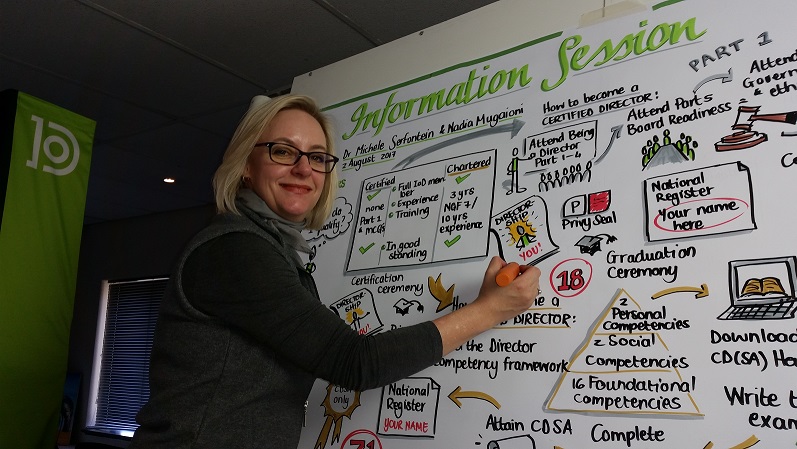 Information Session
Dr Michele Serfontein & Nadia Mugaioni
2 August 2017
How to become a
CERTIFIED DIRECTOR:
PART 1
Attend
Govern
& eth
Attend Being
a Director
Part 1-4
Attend Part 5
Board Readiness
Certified
Chartered
none
Part 1
& MCQs
Full IoD mem
ber
Experience
Training
In good
standing
3 yrs
NQF 7/
10 yrs
experience
DIRECTOR
SHIP
YOU!
Privy Seal
National
Register
Your name
here
18
Graduation
Ceremony
Certification
ceremony
DIRECTOR
SHIP
YOU!
DIRECTOR:
the Director
competency framework
2
Personal
competencies
2 Social
Competencies
16 Foundational
competencies
Download
CD(SA) Ha
only
National
Register
YOUR NAME
71
Attain CDSA
Complete
Write t
exam